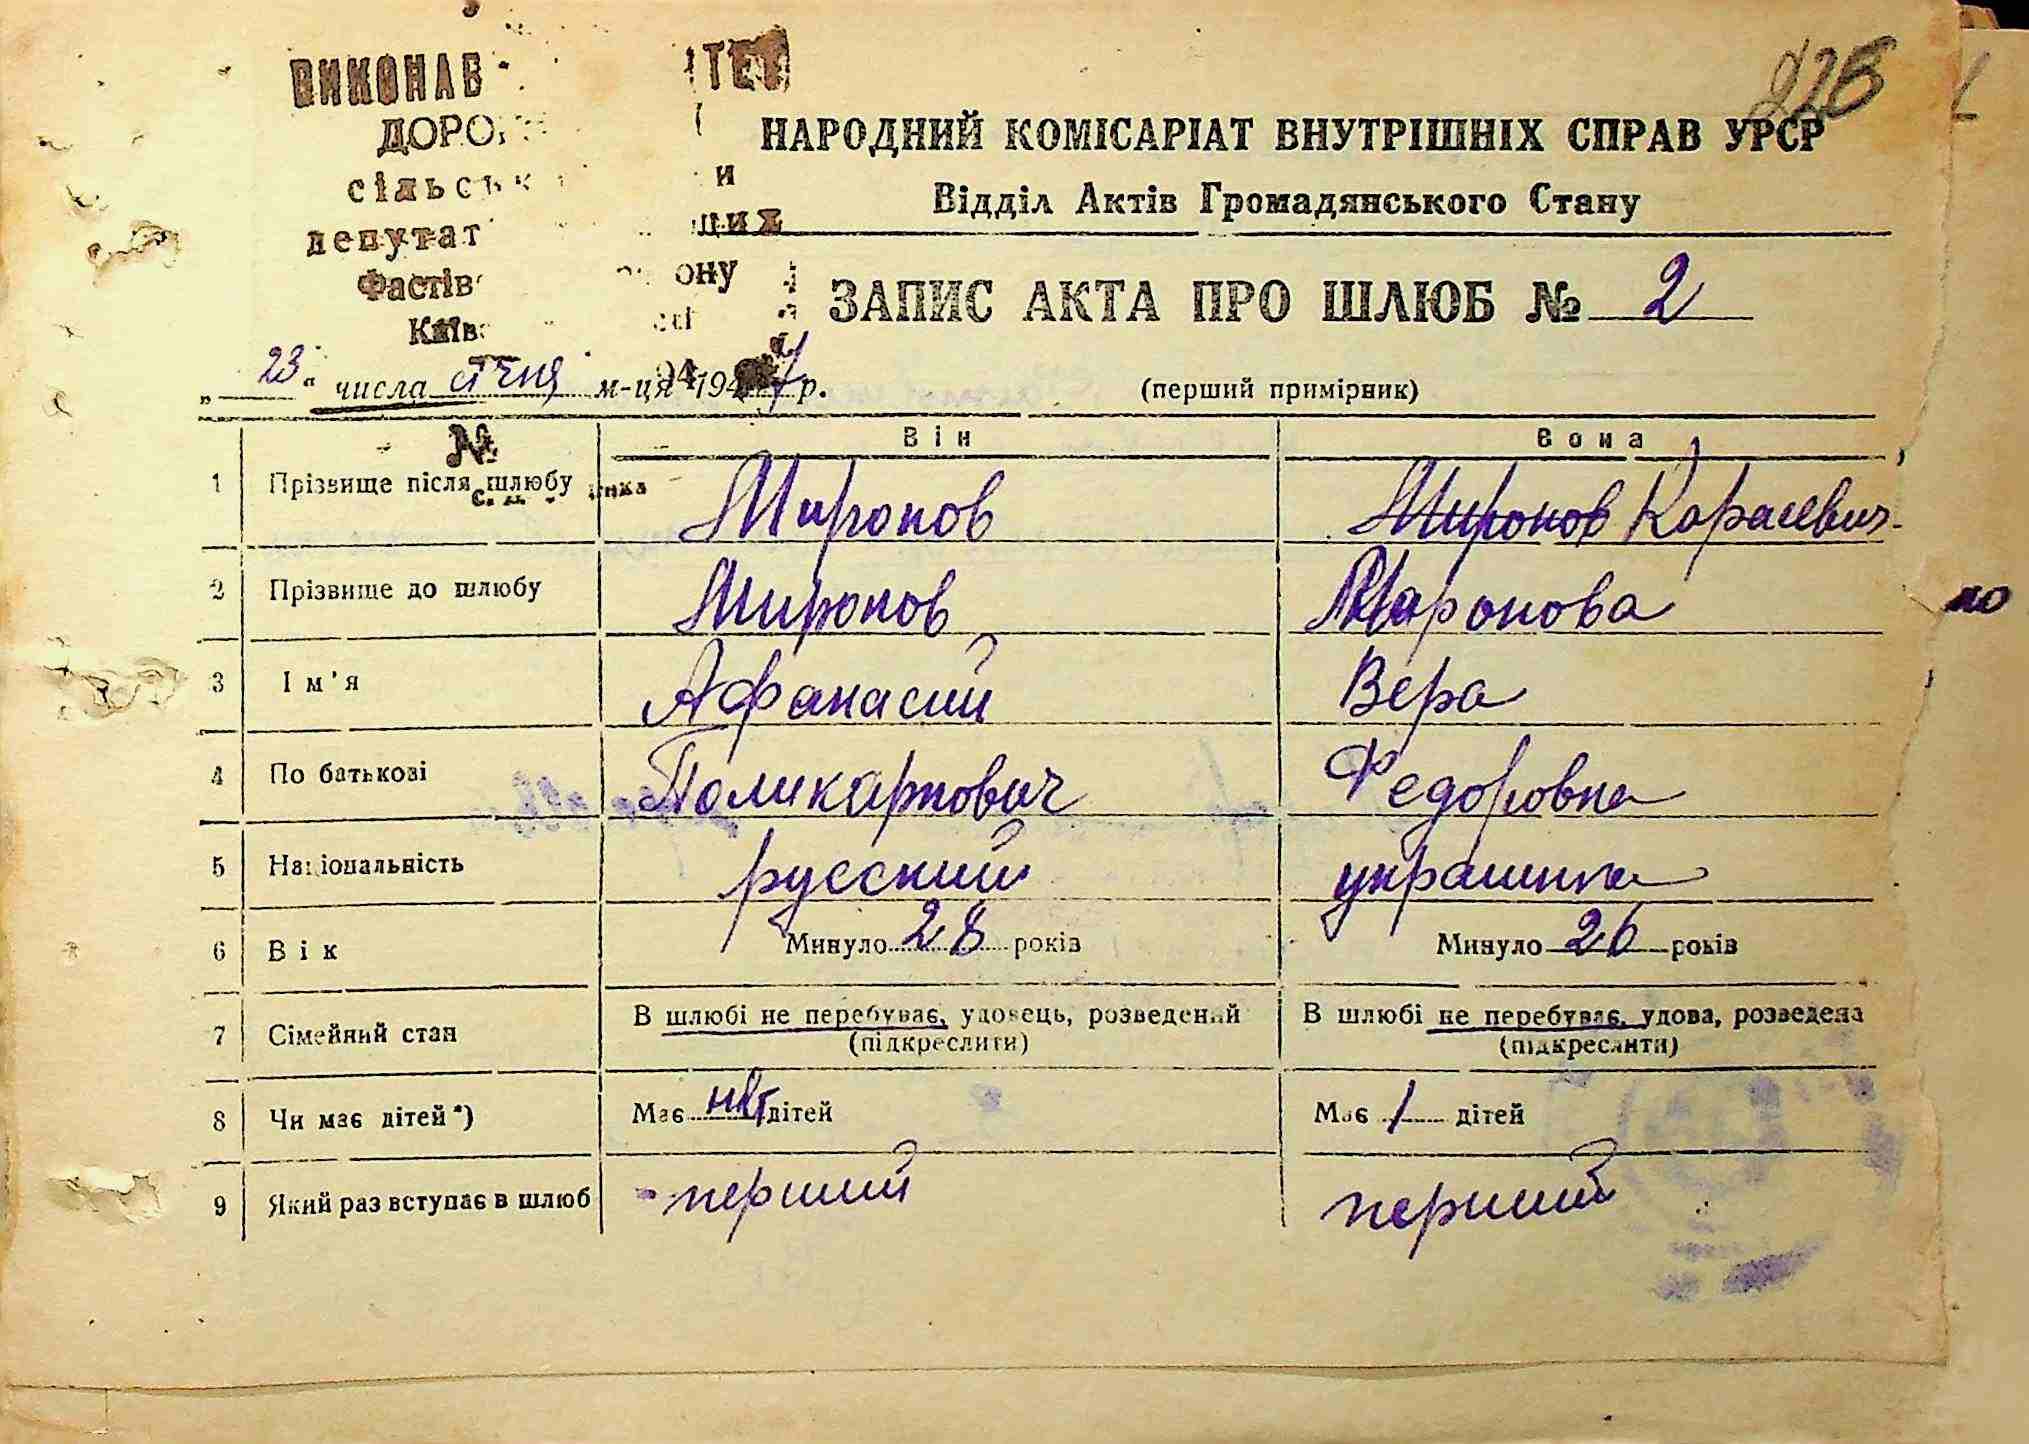 ВИКОНАВ ТЕТ
ДОРО
сільськ и
депутат щих
Фастів ону
Київ
225
НАРОДНИЙ КОМІСАРІАТ ВНУТРІШНІХ СПРАВ УРСР
Відділ Актів Громадянського Стану
ЗАПИС АКТА ПРО ШЛЮБ № 2
„23" числа січня м-ця 1947 р. (перший примірник)
№
Він Вона
1 Прізвище після шлюбу Миронов Миронов Карасевич
2 Прізвище до шлюбу Миронов Миронова
3 Ім'я Афанасий Вера
4 По батькові Поликарпович Федоровна
5 Національність русский украинка
6 Вік Минуло 28 років Минуло 26 років
7 Сімейний стан В шлюбі не перебуває, удовець, розведений В шлюбі не перебуває, удова, розведена
(підкреслити) (підкреслити)
8 Чи має дітей*) Має нет дітей Має 1 дітей
9 Який раз вступає в шлюб перший перший